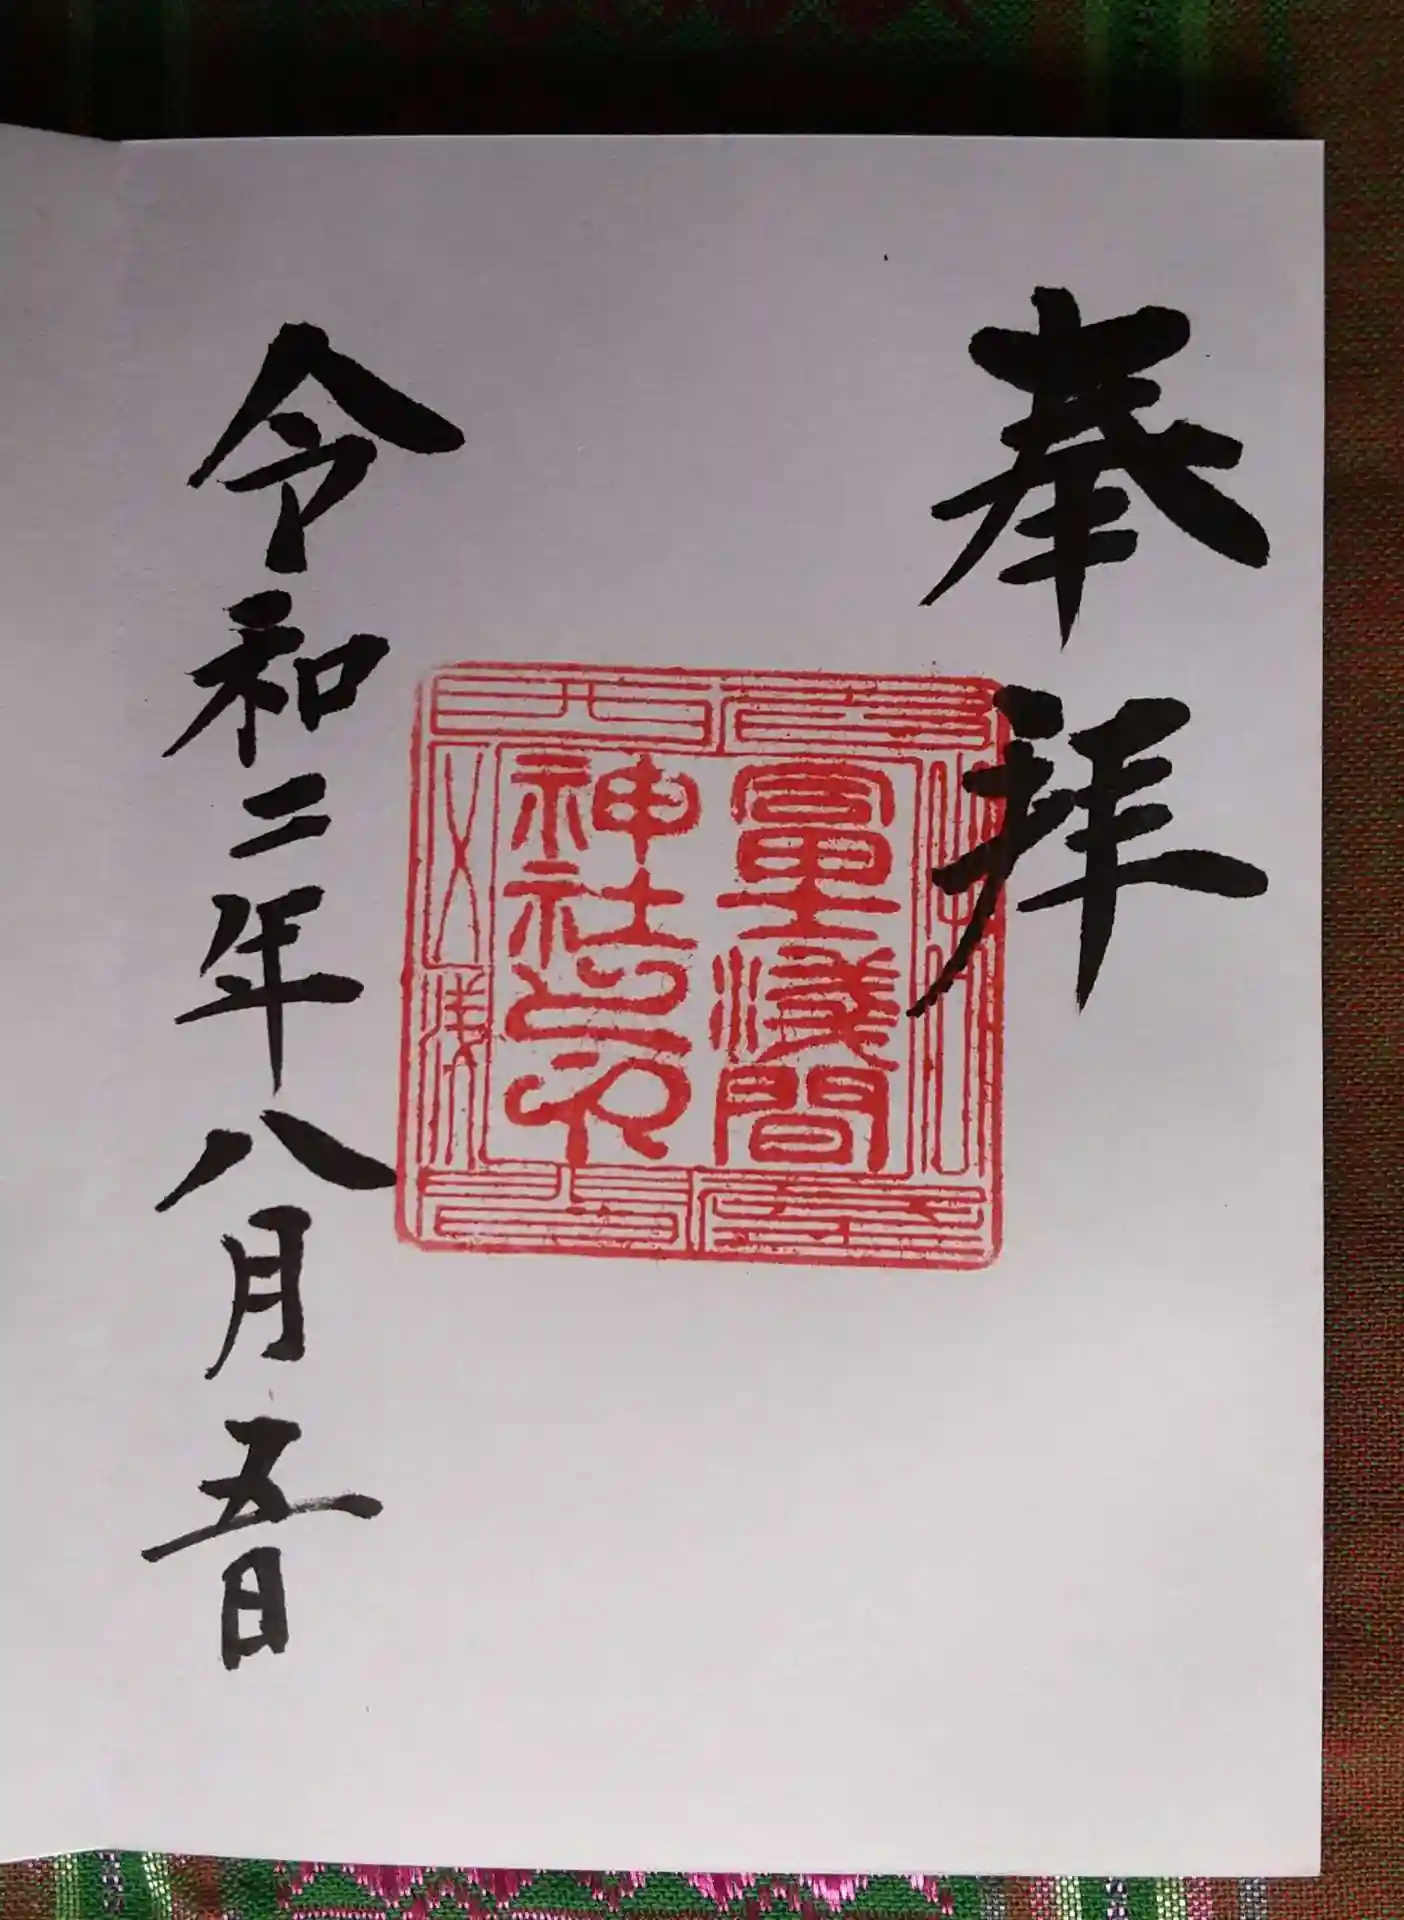 奉拝
冨士淺間
神社之印
令和二年八月五日